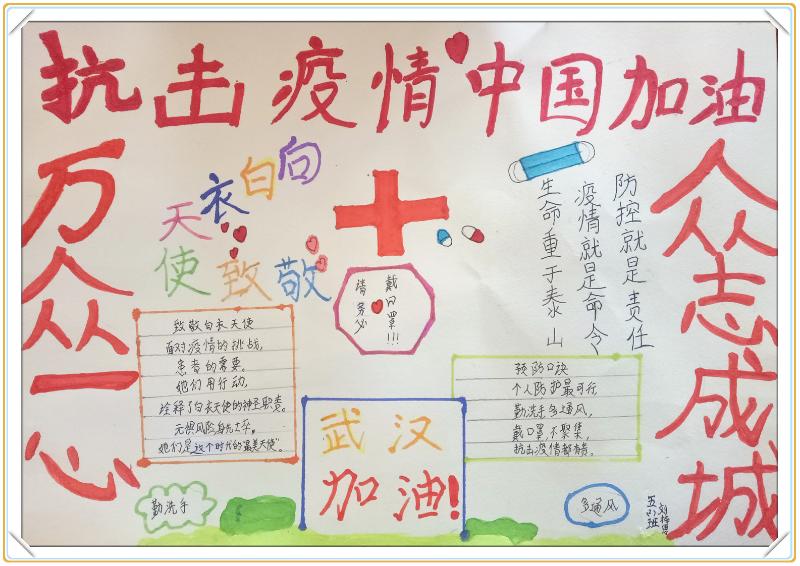 抗击疫情中国加油
万众一心
向白衣
天使致敬
请务必
戴口罩!!!
生命重于泰山
疫情就是命令
防控就是责任
众志成城
致敬白衣天使
面对疫情的挑战,
患者的需要。
他们用行动,
诠释了白衣天使的神圣职责。
无惧风险身先士卒。
他们是这个时代的"最美天使"
预防口诀
个人防护最可行,
勤洗手多通风,
戴口罩,不聚集,
抗击疫情都有责。
武汉
加油!
勤洗手
多通风